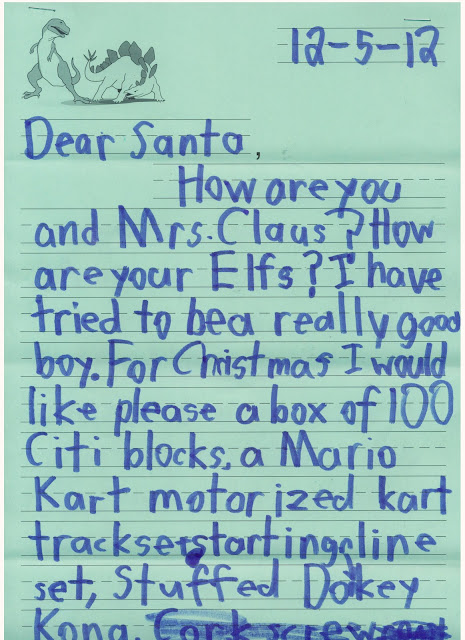 12-5-12
Dear Santa,
How are you
and Mrs. Claus? How
are your Elfs? I have
tried to be a really good
boy. For Christmas I would
like please a box of 100
Citi blocks, a Mario
Kart motorized kart
trackset starting line
set, Stuffed Dokey
Kong.